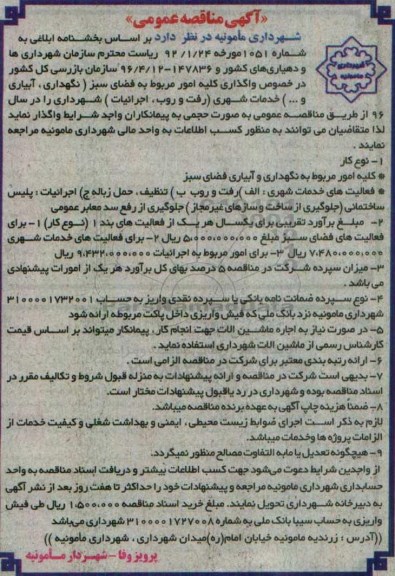 «آگهی مناقصه عمومی»
شهرداری مامونیه در نظر دارد بر اساس بخشنامه ابلاغی به
شماره ۱۰۵۱ مورخه ۹۲/۱/۲۴ ریاست محترم سازمان شهرداری ها
و دهیاریهای کشور و ۱۴۷۸۳۶-۹۶/۴/۱۲ سازمان بازرسی کل کشور
در خصوص واگذاری کلیه امور مربوط به فضای سبز ( نگهداری ، آبیاری
و ... ) خدمات شهری ( رفت و روب ، اجرائیات ) شهرداری را در سال
۹۶ از طریق مناقصه عمومی به صورت حجمی به پیمانکاران واجد شرایط واگذار نماید
لذا متقاضیان می توانند به منظور کسب اطلاعات به واحد مالی شهرداری مامونیه مراجعه
نمایند .
۱- نوع کار
* کلیه امور مربوط به نگهداری و آبیاری فضای سبز
* فعالیت های خدمات شهری : الف ) رفت و روب ب ) تنظیف ، حمل زباله ج) اجرائیات : پلیس
ساختمانی (جلوگیری از ساخت و سازهای غیرمجاز ) جلوگیری از رفع سد معابر عمومی
۲- مبلغ برآورد تقریبی برای یکسال هر یک از فعالیت های بند ۱ (نوع کار) ۱- برای
فعالیت های فضای سبز مبلغ ۵,۰۰۰,۰۰۰,۰۰۰ ریال ۲- برای فعالیت های خدمات شهری
۷,۴۸۰,۰۰۰,۰۰۰ ریال ۳- برای امور مربوط به اجرائیات ۹,۴۳۲,۰۰۰,۰۰۰ ریال
۳- میزان سپرده شرکت در مناقصه ۵ درصد بهای کل برآورد هر یک از امورات پیشنهادی
می باشد .
۴- نوع سپرده ضمانت نامه بانکی یا سپرده نقدی واریز به حساب ۳۱۰۰۰۰۱۷۳۲۰۰۱
شهرداری مامونیه نزد بانک ملی که فیش واریزی داخل پاکت مربوطه ارائه شود
۵- در صورت نیاز به اجاره ماشین الات جهت انجام کار ، پیمانکار میتواند بر اساس قیمت
کارشناس رسمی از ماشین الات شهرداری استفاده نماید .
۶- ارائه رتبه بندی معتبر برای شرکت در مناقصه الزامی است .
۷- بدیهی است شرکت در مناقصه و ارائه پیشنهادات به منزله قبول شروط و تکالیف مقرر در
اسناد مناقصه بوده و شهرداری در رد یا قبول پیشنهادات مختار است.
۸- ضمنا هزینه چاپ آگهی به عهده برنده مناقصه میباشد.
لازم به ذکر است اجرای ضوابط زیست محیطی ، ایمنی و بهداشت شغلی و کیفیت خدمات از
الزامات پروژه ها وخدمات میباشد.
۹- هیچگونه تعدیل یا مابه التفاوت مصالح منظور نمیگردد.
از واجدین شرایط دعوت می‌شود جهت کسب اطلاعات بیشتر و دریافت اسناد مناقصه به واحد
حسابداری شهرداری مامونیه مراجعه و پیشنهادات خود را حداکثر تا هفت روز بعد از نشر آگهی
به دبیرخانه شهرداری تحویل نمایند. مبلغ خرید اسناد مناقصه ۱,۵۰۰,۰۰۰ ریال طی فیش
واریزی به حساب سیبا بانک ملی به شماره ۳۱۰۰۰۰۱۷۲۷۰۰۸ شهرداری می‌باشد
((آدرس : زرندیه مامونیه خیابان امام(ره)میدان شهرداری ، شهرداری مأمونیه ))
پرویز وفا - شهردار مأمونیه